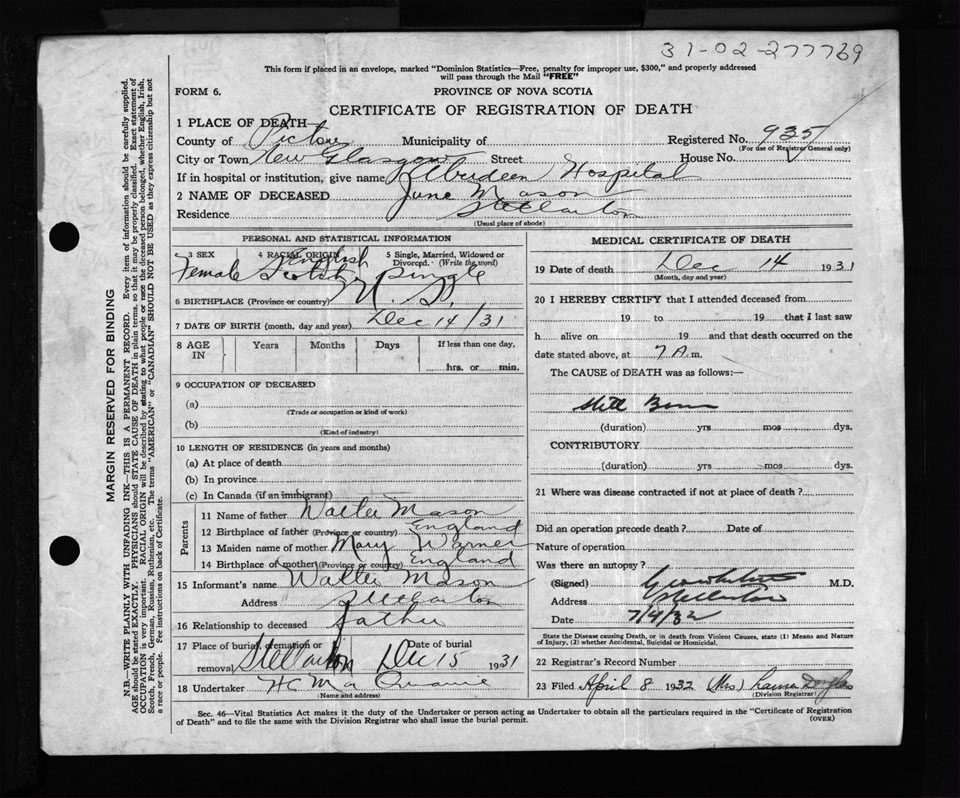 31-02-277769
This form if placed in an envelope, marked "Dominion Statistics—Free, penalty for improper use, $300," and properly addressed
will pass through the Mail "FREE"
FORM 6. PROVINCE OF NOVA SCOTIA
CERTIFICATE OF REGISTRATION OF DEATH
1 PLACE OF DEATH
County of Pictou Municipality of Registered No. 935
(For use of Registrar General only)
City or Town New Glasgow Street House No.
If in hospital or institution, give name Aberdeen Hospital
2 NAME OF DECEASED June Mason
Residence Stellarton
(Usual place of abode)
PERSONAL AND STATISTICAL INFORMATION
3 SEX 4 RACIAL ORIGIN 5 Single, Married, Widowed or Divorced. (Write the word)
Female English Scotch Single
6 BIRTHPLACE (Province or country) N. S.
7 DATE OF BIRTH (month, day and year) Dec 14/31
8 AGE IN Years Months Days If less than one day,
hrs. or min.
9 OCCUPATION OF DECEASED
(a)
(Trade or occupation or kind of work)
(b)
(Kind of industry)
10 LENGTH OF RESIDENCE (in years and months)
(a) At place of death
(b) In province
(c) In Canada (if an immigrant)
Parents
11 Name of father Walter Mason
12 Birthplace of father (Province or country) England
13 Maiden name of mother Mary Warner
14 Birthplace of mother (Province or country) England
15 Informant's name Walter Mason
Address Stellarton
16 Relationship to deceased father
17 Place of burial, cremation or removal Stellarton Date of burial Dec 15 1931
18 Undertaker H C MacQuarrie
(Name and address)
MEDICAL CERTIFICATE OF DEATH
19 Date of death Dec 14 1931
(Month, day and year)
20 I HEREBY CERTIFY that I attended deceased from
19 to 19 that I last saw
h alive on 19 and that death occurred on the
date stated above, at 7 A. m.
The CAUSE of DEATH was as follows:—
Still Born
(duration) yrs mos dys.
CONTRIBUTORY
(duration) yrs mos dys.
21 Where was disease contracted if not at place of death?
Did an operation precede death? Date of
Nature of operation
Was there an autopsy?
(Signed) M.D.
Address Stellarton
Date 7/4/32
State the Disease causing Death, or in death from Violent Causes, state (1) Means and Nature
of Injury, (2) whether Accidental, Suicidal or Homicidal.
22 Registrar's Record Number
23 Filed April 8 1932 (Mrs) Douglas
(Division Registrar)
Sec. 46—Vital Statistics Act makes it the duty of the Undertaker or person acting as Undertaker to obtain all the particulars required in the "Certificate of Registration
of Death" and to file the same with the Division Registrar who shall issue the burial permit. (OVER)
MARGIN RESERVED FOR BINDING
N.B.—WRITE PLAINLY WITH UNFADING INK—THIS IS A PERMANENT RECORD. Every item of information should be carefully supplied.
AGE should be stated EXACTLY. PHYSICIANS should STATE CAUSE OF DEATH in plain terms, so that it may be properly classified. Exact statement of
OCCUPATION is very important. RACIAL ORIGIN will be described by stating to what people or race the deceased person belonged, whether English, Irish,
Scotch, French, German, Russian, Ruthenian, etc. The terms "AMERICAN" or "CANADIAN" SHOULD NOT BE USED as they express citizenship but not
a race or people. Fee instructions on back of Certificate.